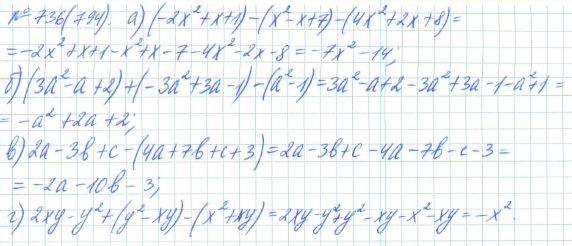 № 736(794). а) (-2x²+x+1)-(x²-x+7)-(4x²+2x+8)=
=-2x²+x+1-x²+x-7-4x²-2x-8=-7x²-14;
б) (3a²-a+2)+(-3a²+3a-1)-(a²-1)=3a²-a+2-3a²+3a-1-a²+1=
=-a²+2a+2;
в) 2a-3b+c-(4a+7b+c+3)=2a-3b+c-4a-7b-c-3=
=-2a-10b-3;
г) 2xy-y²+(y²-xy)-(x²+xy)=2xy-y²+y²-xy-x²-xy=-x².